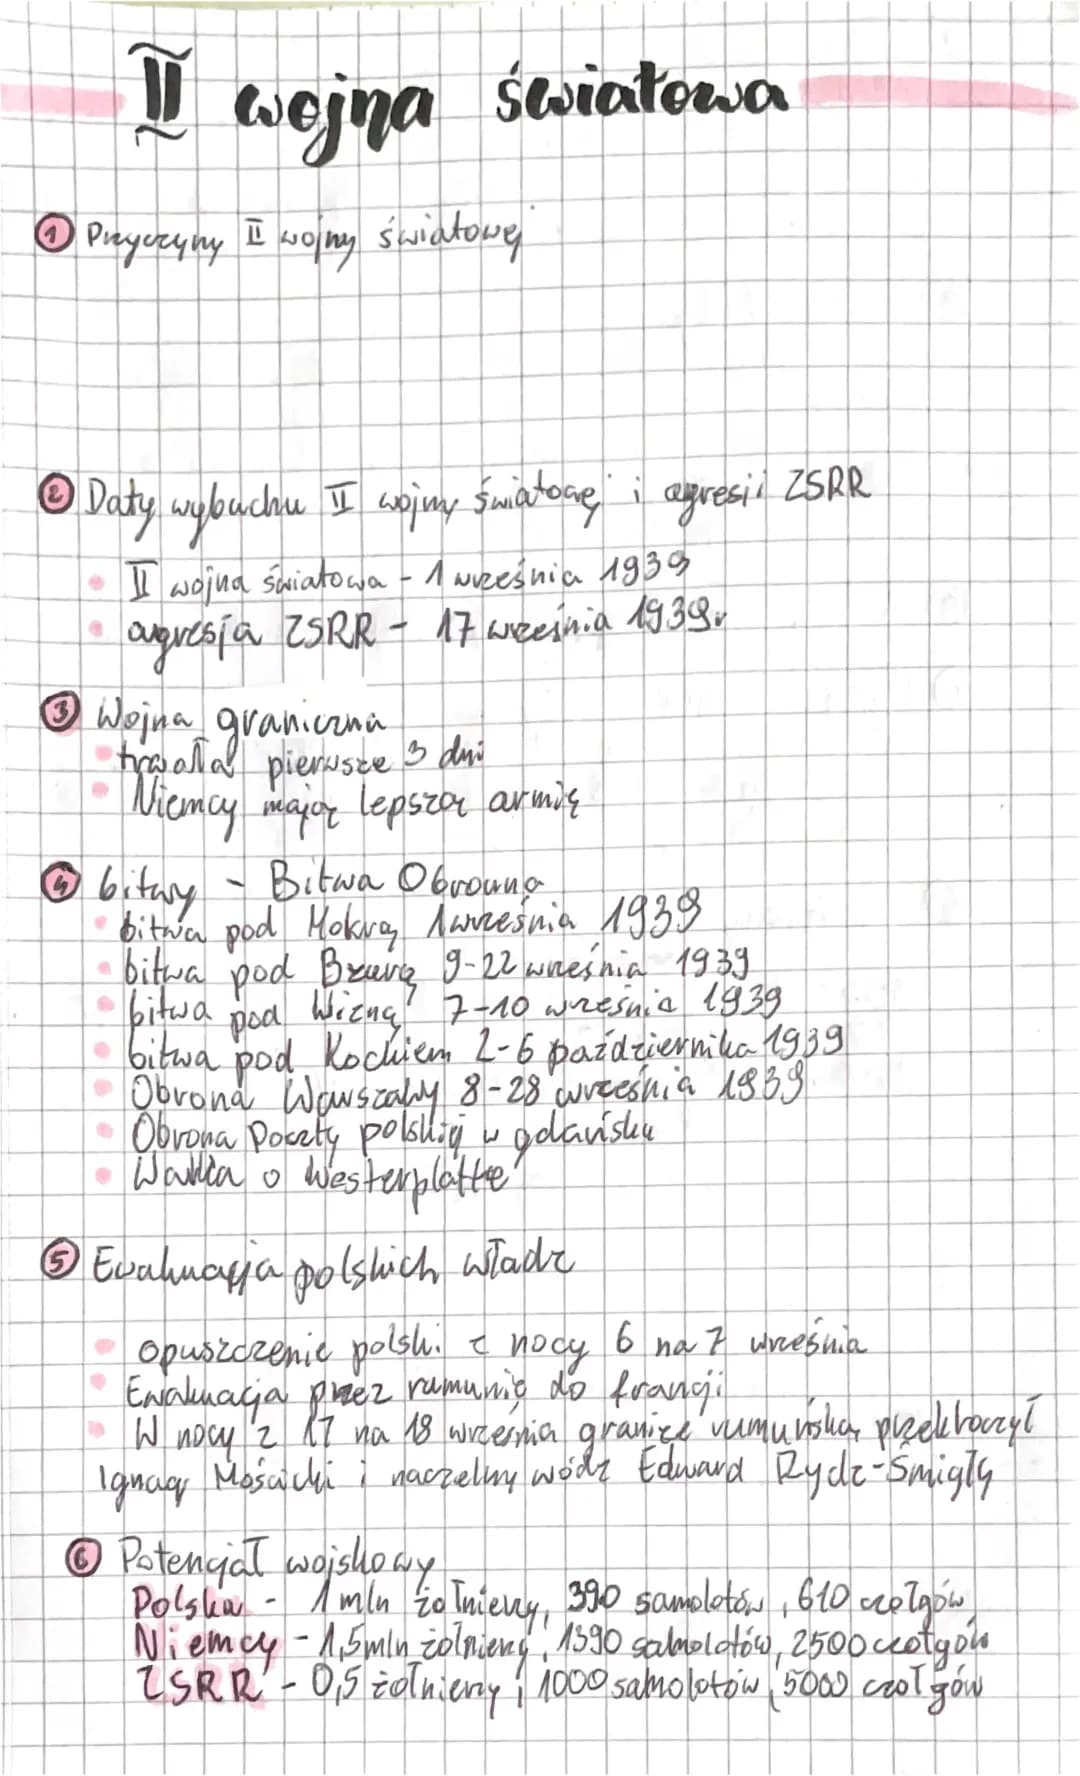 II wojna światowa
1 Przyczyny II wojny światowej
2 Daty wybuchu II wojny światowej i agresji ZSRR
II wojna światowa - 1 września 1939
agresja ZSRR - 17 września 1939r
3 Wojna graniczna
trwała pierwsze 3 dni
Niemcy mają lepszą armię
4 bitwy - Bitwa Obronna
bitwa pod Mokrą 1 września 1939
bitwa pod Bzurą 9-22 września 1939
bitwa pod Wizną 7-10 września 1939
bitwa pod Kockiem 2-6 października 1939
Obrona Warszawy 8-28 września 1939
Obrona Poczty polskiej w gdańsku
Walka o Westerplatte
5 Ewakuacja polskich władz
opuszczenie polski z nocy 6 na 7 września
Ewakuacja przez rumunię do francji
W nocy z 17 na 18 września granicę rumuńską przekroczył
Ignacy Mościcki i naczelny wódz Edward Rydz-Śmigły
6 Potencjał wojskowy
Polska - 1 mln żołnierzy, 390 samolotów, 610 czołgów
Niemcy - 1,5mln żołnierzy, 1390 samolotów, 2500 czołgów
ZSRR - 0,5 żołnierzy, 1000 samolotów, 5000 czołgów